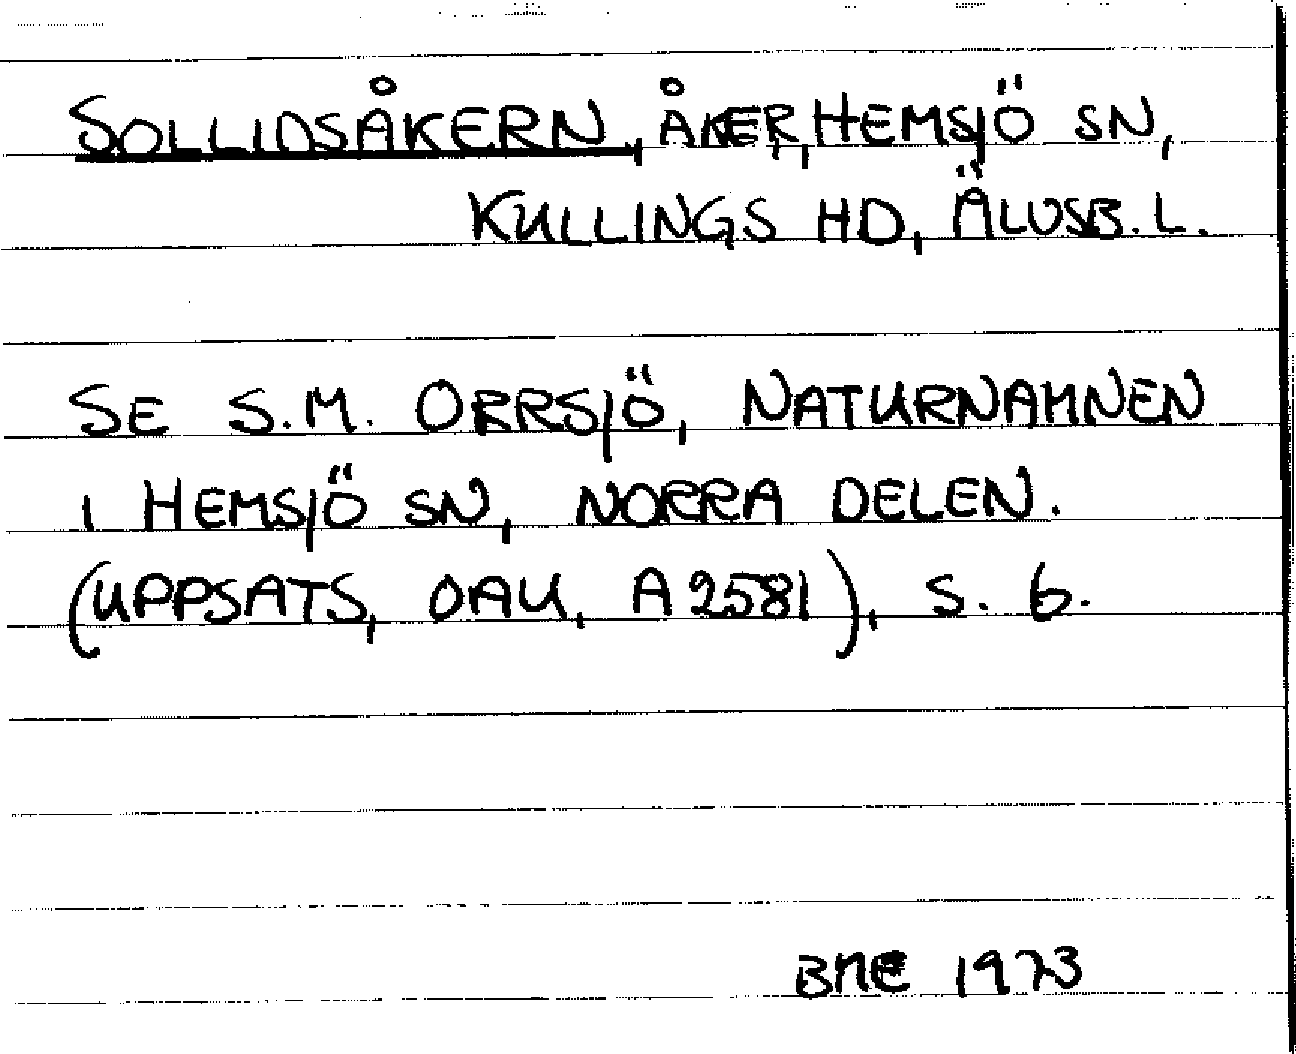 SOLLIDSÅKERN, ÅKER, HEMSJÖ SN,
KULLINGS HD, ÄLVSB. L.
SE S.M. ORRSJÖ, NATURNAMNEN
I HEMSJÖ SN, NORRA DELEN.
(UPPSATS, OAU, A 2581), S. 6.
BME 1973